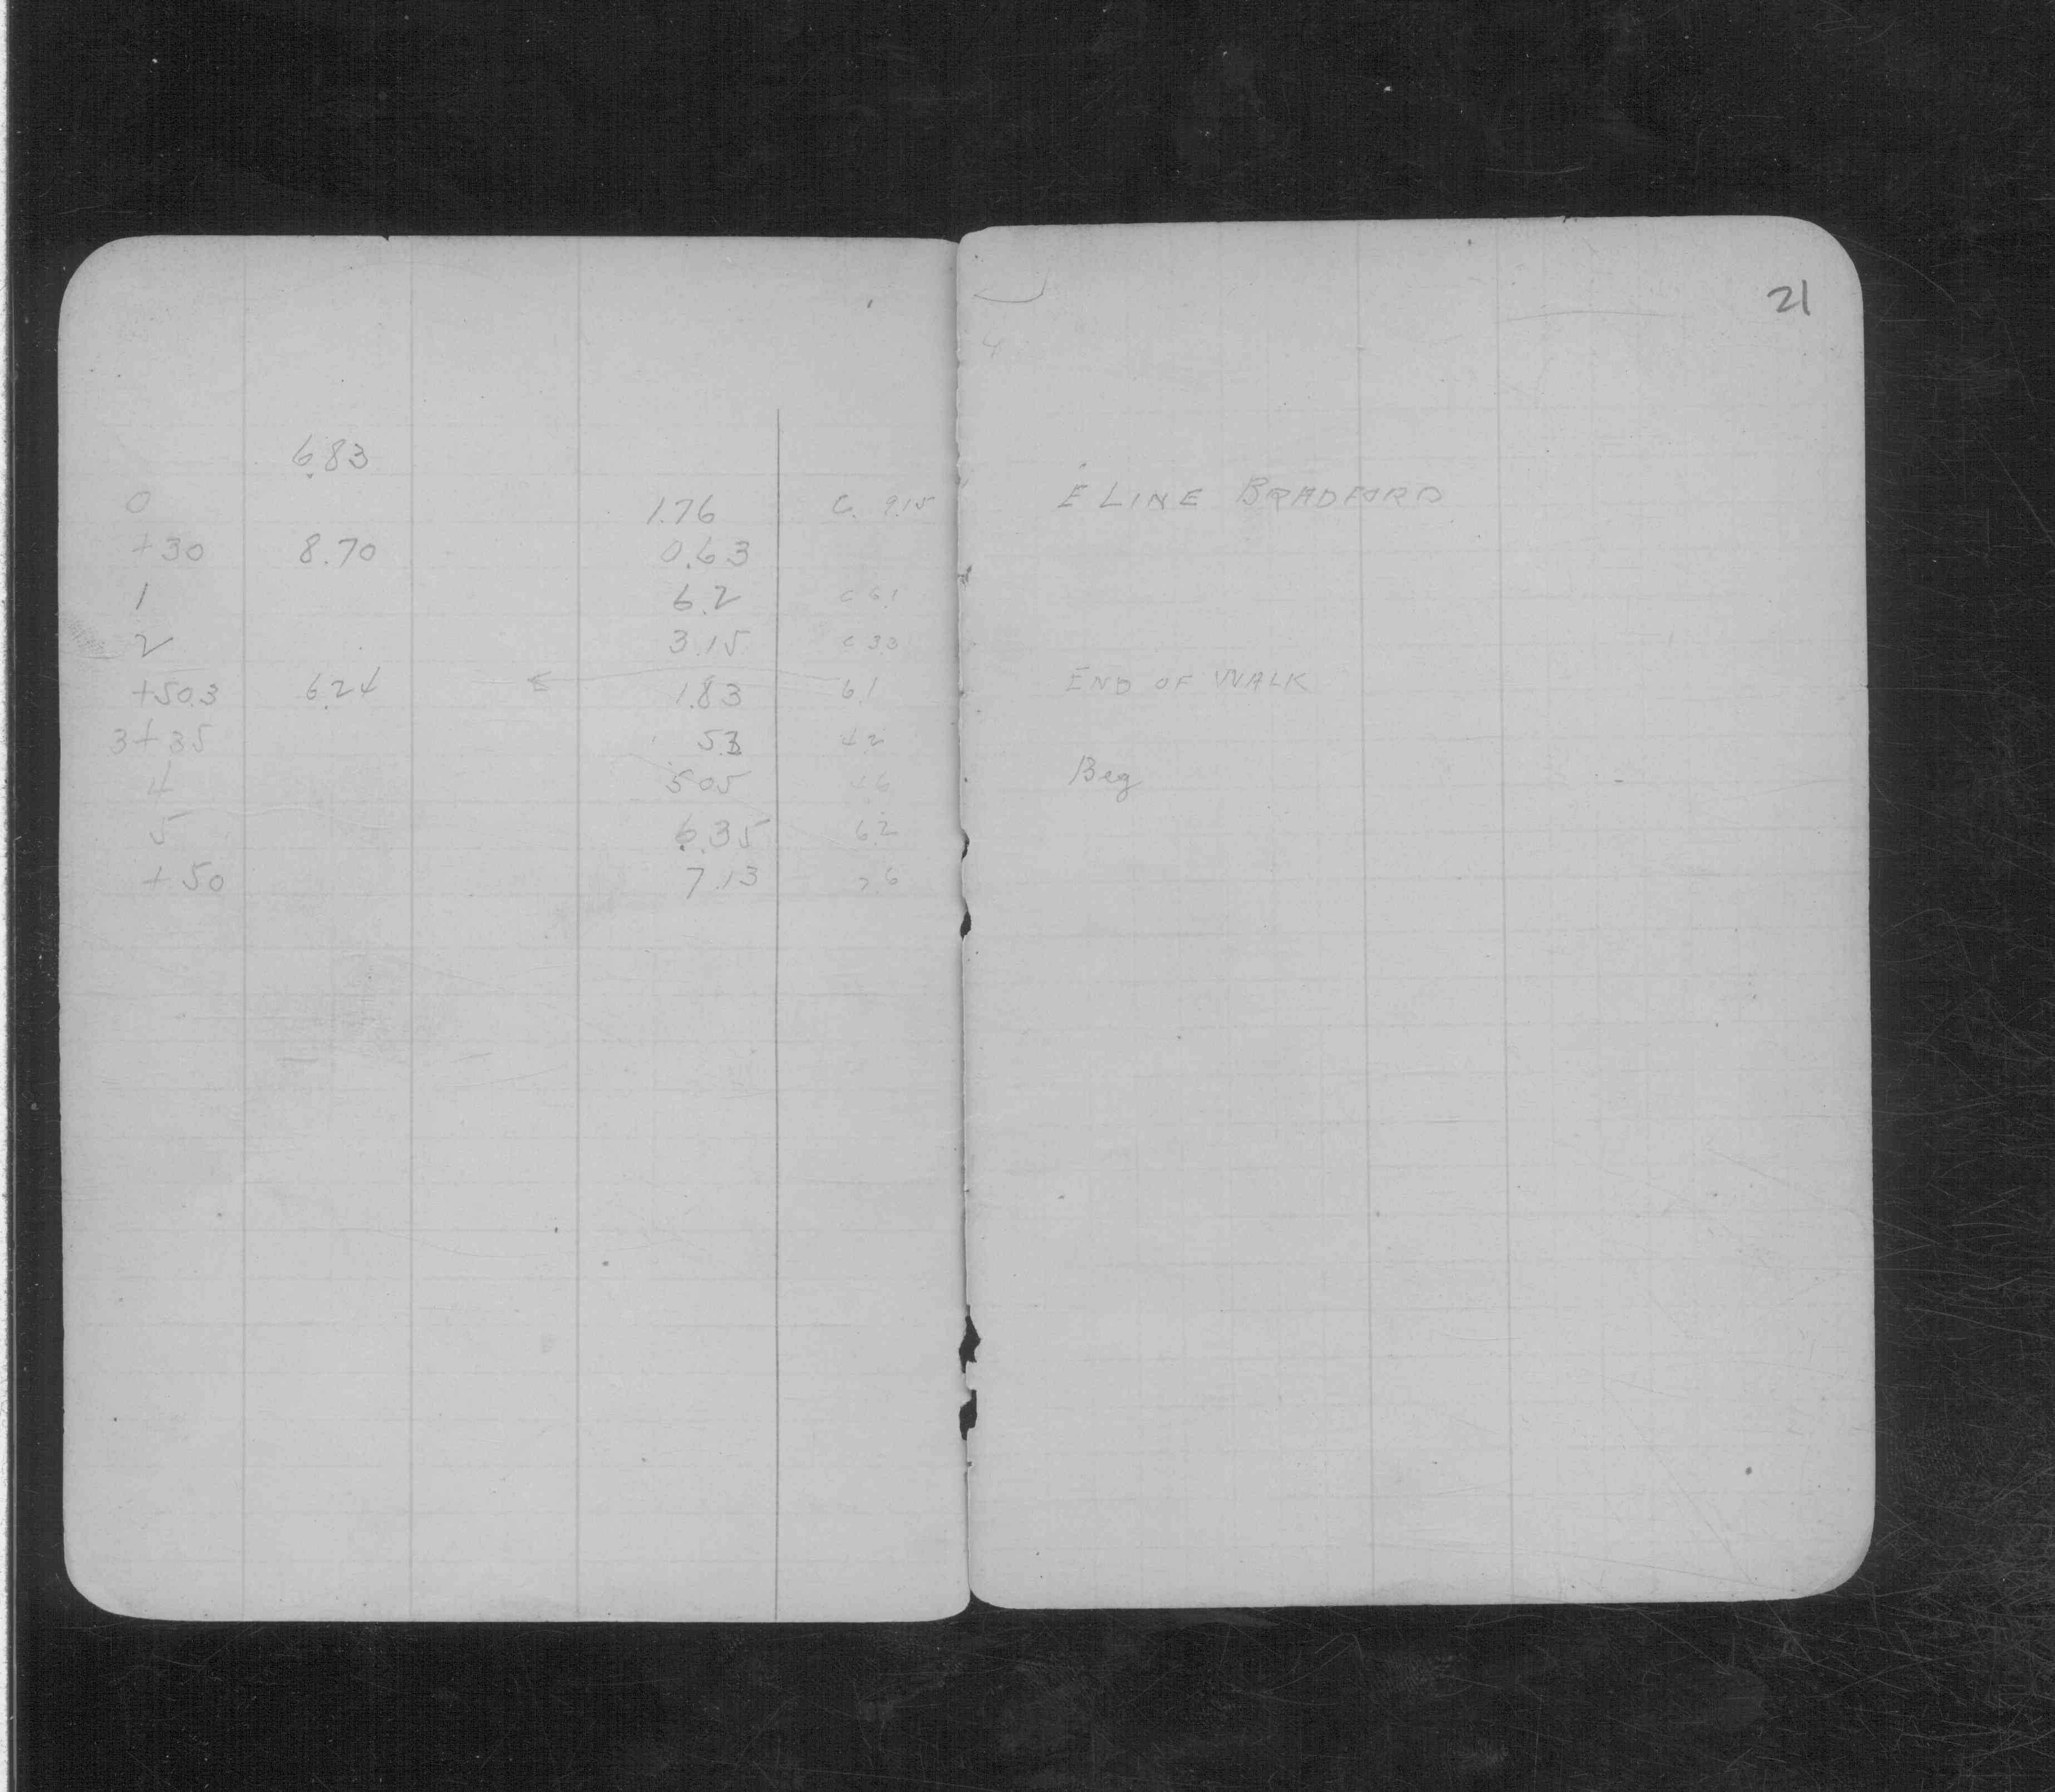 21
6.83
0 1.76 C. 9.15 E LINE BRADFORD
+30 8.70 0.63
1 6.2 C 6.1
2 3.15 C 3.3
+50.3 6.24 1.83 6.1 END OF WALK
3+35 5.3 4.2
4 5.05 4.6 Beg
5 6.35 6.2
+50 7.13 7.6